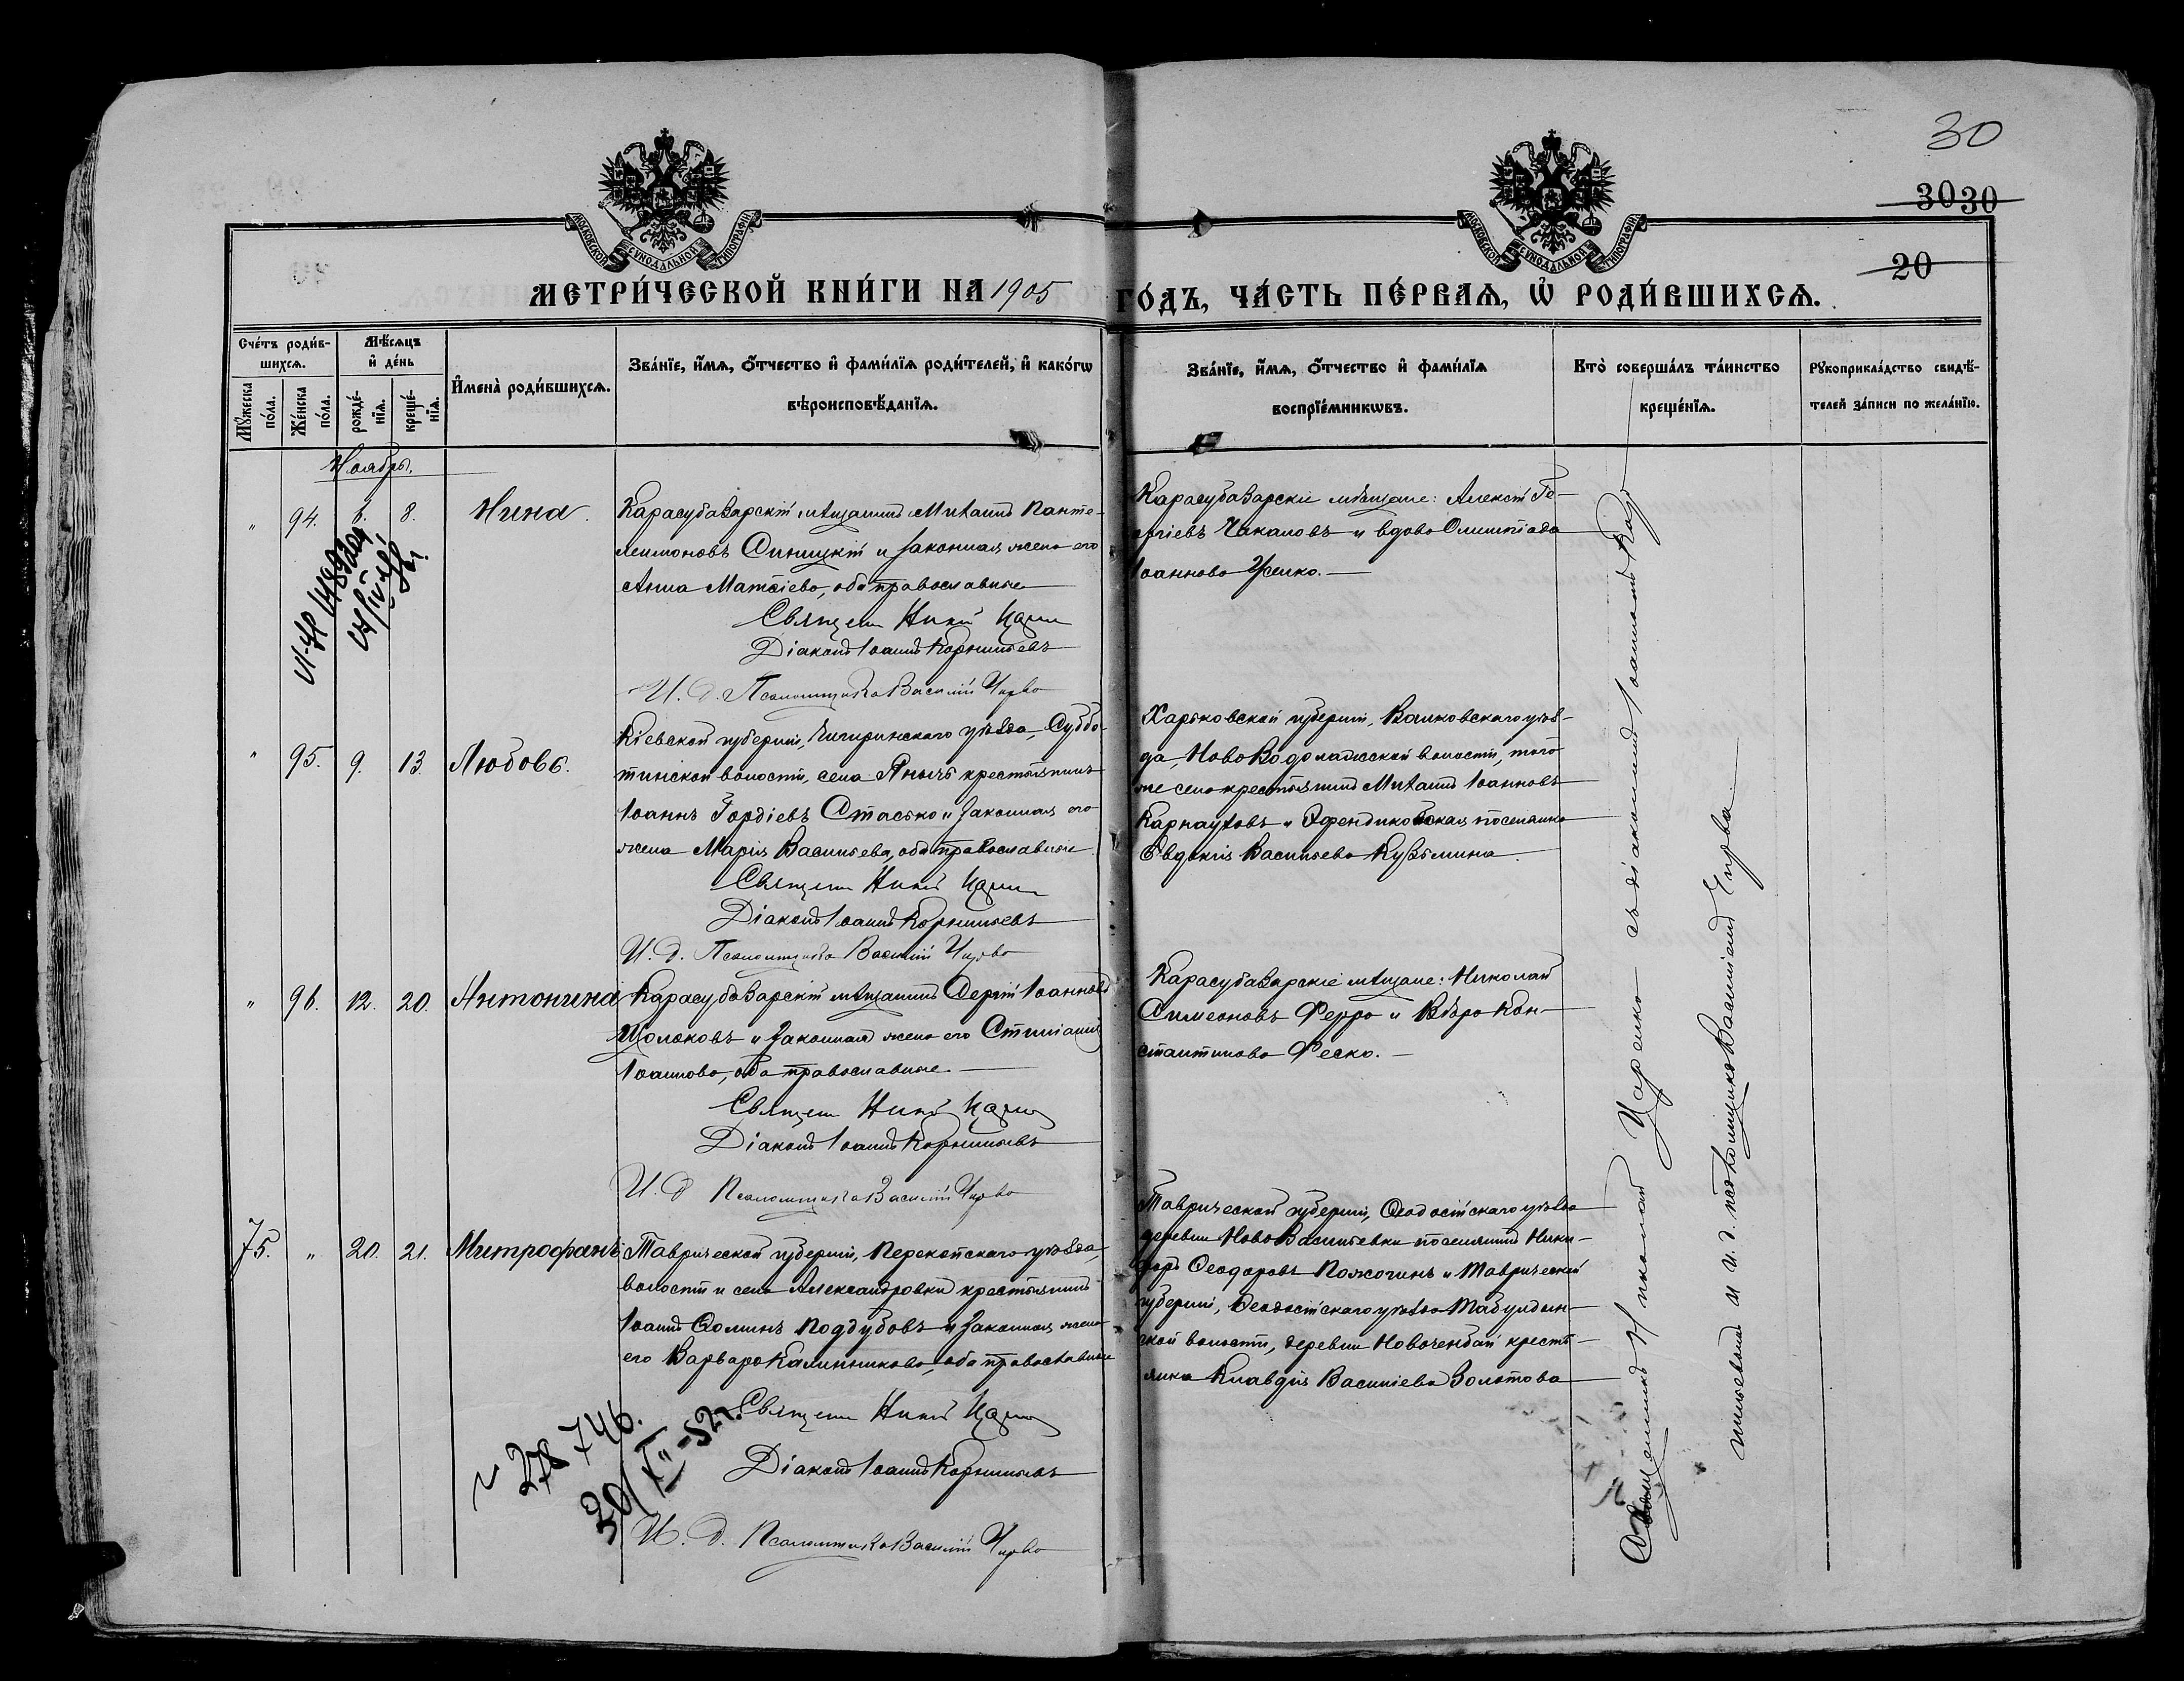 30
30 30
20
МОСКОВСКОЙ СѴНОДАЛЬНОЙ ТИПОГРАФІИ
МОСКОВСКОЙ СѴНОДАЛЬНОЙ ТИПОГРАФІИ
МЕТРИ́ЧЕСКОЙ КНИ́ГИ НА 1905 ГО́ДЪ, ЧА́СТЬ ПЕ́РВАѦ, Ѡ҆ РОДИ́ВШИХСѦ.
Сче́тъ роди́в-
шихсѧ.
Мꙋ́жеска по́ла.
Же́нска по́ла.
Мѣ́сѧцъ
и҆ де́нь
рожде́-
нїѧ.
креще́-
нїѧ.
И҆мена̀ роди́вшихсѧ.
Зва́нїе, и҆́мѧ, ѻ҆́тчество и҆ фами́лїѧ роди́телей, и҆ како́гѡ
вѣроисповѣ́данїѧ.
Зва́нїе, и҆́мѧ, ѻ҆́тчество и҆ фами́лїѧ
воспрїе́мникѡвъ.
Кто̀ соверша́лъ та́инство
креще́нїѧ.
Рꙋкоприкла́дство свидѣ́-
телей за́писи по жела́нїю.
Ноябрь.
" 94. 6. 8. Нина.
Карасубазарскій мѣщанинъ Михаилъ Панте-
леимоновъ Синицкій и законная жена его
Анна Матѳіева, оба православные
Священ Никой Цари
Діаконъ Іоаннъ Корнильевъ
И. д. Псаломщика Василій Чирва
Карасубазарскіе мѣщане: Алексій Ге-
оргіевъ Чакаловъ и вдова Олимпіада
Іоаннова Усенко.
" 95. 9. 13. Любовь.
Кіевской губерніи, Чигиринскаго уѣзда, Суббо-
тинской волости, села Янычъ крестьянинъ
Іоаннъ Гордіевъ Стасько и законная его
жена Марія Васильева, оба православные
Священ Никой Цари
Діаконъ Іоаннъ Корнильевъ
И. д. Псаломщика Василій Чирва
Харьковской губерніи, Валковскаго уѣз-
да, Ново Водолажской волости, того
же села крестьянинъ Михаилъ Іоанновъ
Карнауховъ и Эфендикойская поселянка
Евдокія Васильева Кузьмина.
" 96. 12. 20. Антонина
Карасубазарскій мѣщанинъ Сергій Іоанновъ
Щолоковъ и законная жена его Стиліани
Іоаннова, оба православные.
Священ Никой Цари
Діаконъ Іоаннъ Корнильевъ
И. д Псаломщика Василій Чирва
Карасубазарскіе мѣщане: Николай
Симеоновъ Ферро и Вѣра Кон-
стантинова Феско.
75. " 20. 21. Митрофанъ
Таврической губерніи, Перекопскаго уѣзда,
волости и села Александровки крестьянинъ
Іоаннъ Ѳоминъ Поддубовъ и законная жена
его Варвара Калинникова, оба православные
Священ Никой Цари
Діаконъ Іоаннъ Корнильевъ
И. д. Псаломщика Василій Чирва
Таврической губерніи, Ѳеодосійскаго уѣзда
деревни Ново Васильевки поселянинъ Ники-
форъ Ѳеодоровъ Пожогинъ и Таврической
губерніи, Ѳеодосійскаго уѣзда Табулдын-
ской волости, деревни Новочембай кресть-
янка Клавдія Васильева Золотова
Священникъ Николай Царенко съ діакономъ Іоанномъ Кор-
нильевымъ и и. д. псаломщика Василіемъ Чирва
28746.
30/XII-52г.